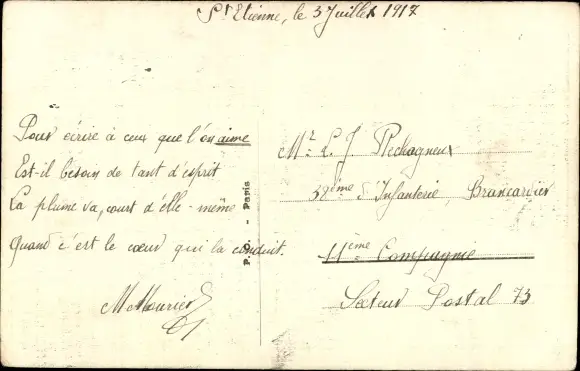 St Etienne, le 3 Juillet 1917
Pour écrire à ceux que l'on aime
Est-il besoin de tant d'esprit
La plume va, court d'elle-même
Quand c'est le cœur qui la conduit.
M Mourier
P.O. - Paris
Mr L. J. Rechagneux
38ième d'Infanterie, Brancardier
11ème Compagnie
Secteur Postal 73